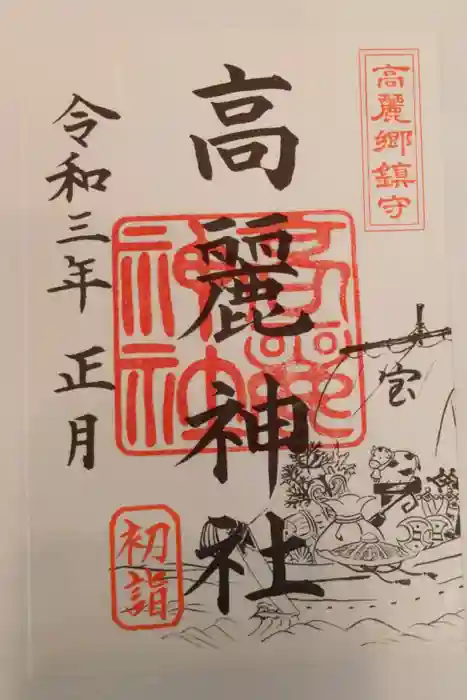 高麗郷鎮守
高麗神社
高麗神社
令和三年 正月
宝
初詣